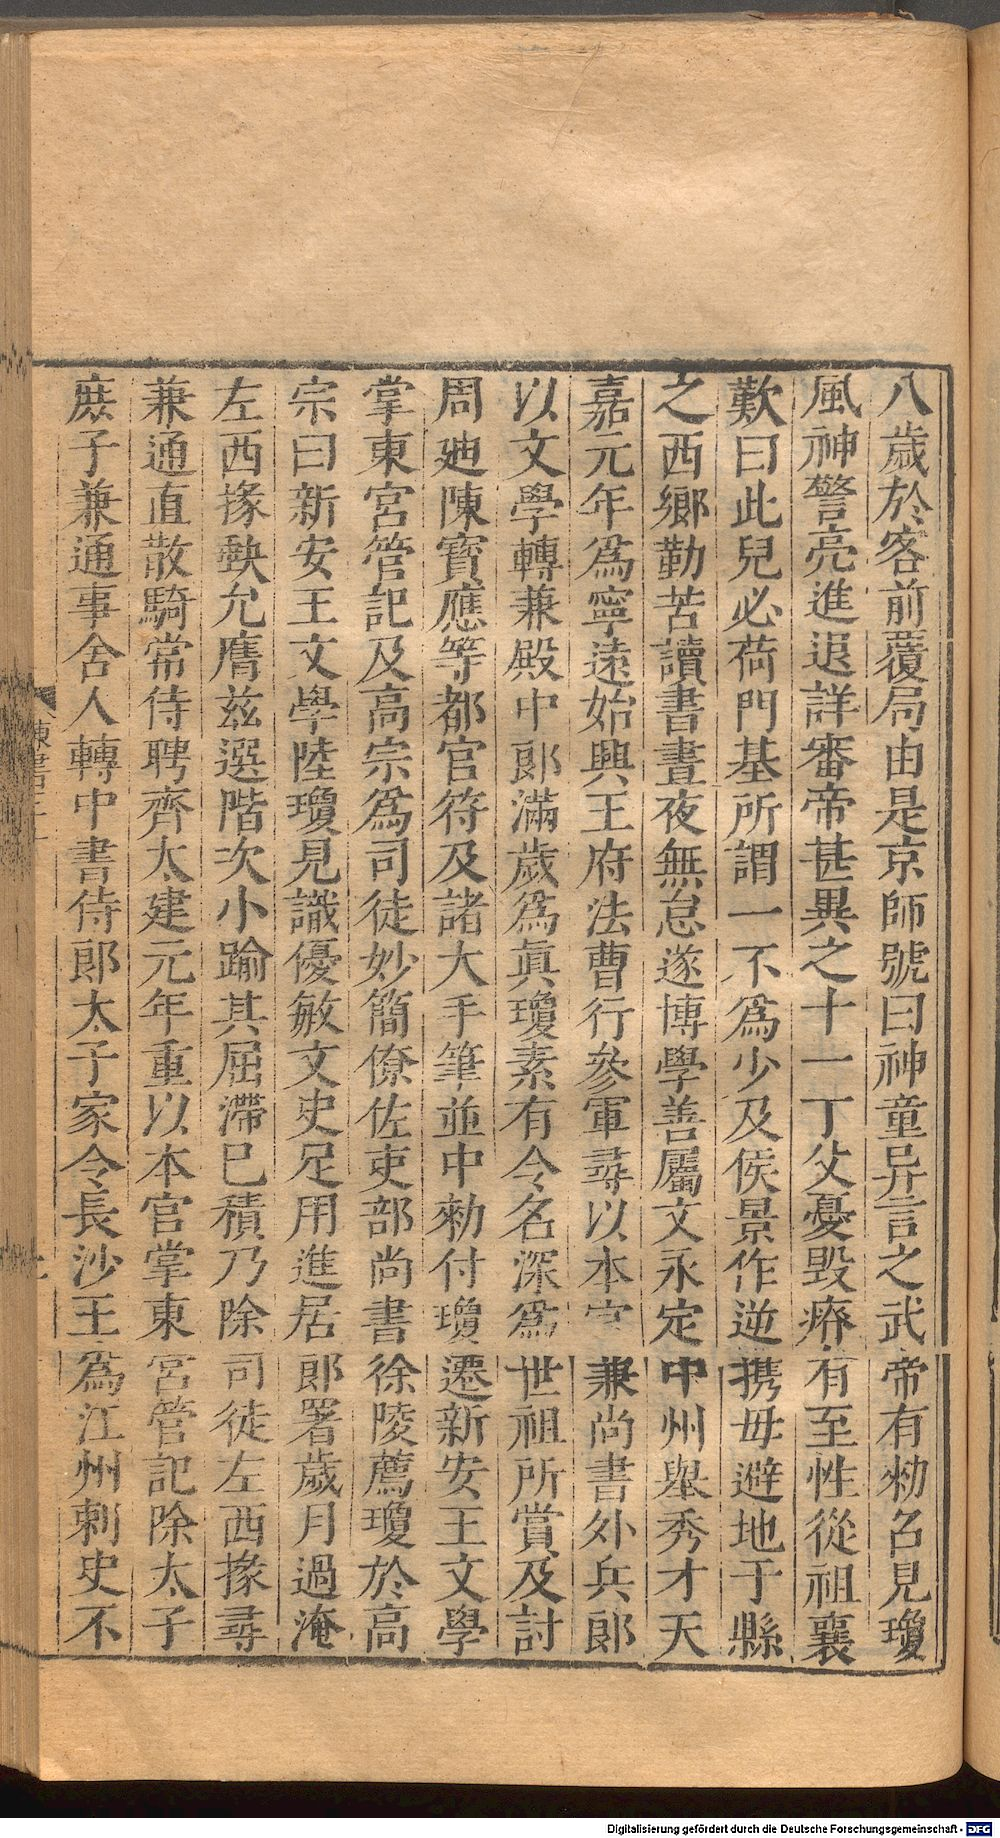 八歲於客前覆局由是京師號曰神童异言之武帝有勑召見瓊
風神警亮進退詳審帝甚異之十一丁父憂毀瘠有至性從祖襄
歎曰此兒必荷門基所謂一不爲少及侯景作逆携母避地于縣
之西鄉勤苦讀書晝夜無怠遂博學善屬文永定中州舉秀才天
嘉元年爲寧遠始興王府法曹行參軍尋以本官兼尚書外兵郎
以文學轉兼殿中郎滿歲爲眞瓊素有令名深爲世祖所賞及討
周廸陳寶應等都官符及諸大手筆並中勑付瓊遷新安王文學
掌東宮管記及高宗爲司徒妙簡僚佐吏部尚書徐陵薦瓊於高
宗曰新安王文學陸瓊見識優敏文史足用進居郎署歲月過淹
左西掾缺允膺兹選階次小踰其屈滯已積乃除司徒左西掾尋
兼通直散騎常侍聘齊太建元年重以本官掌東宮管記除太子
庶子兼通事舍人轉中書侍郎太子家令長沙王爲江州刺史不
Digitalisierung gefördert durch die Deutsche Forschungsgemeinschaft - DFG